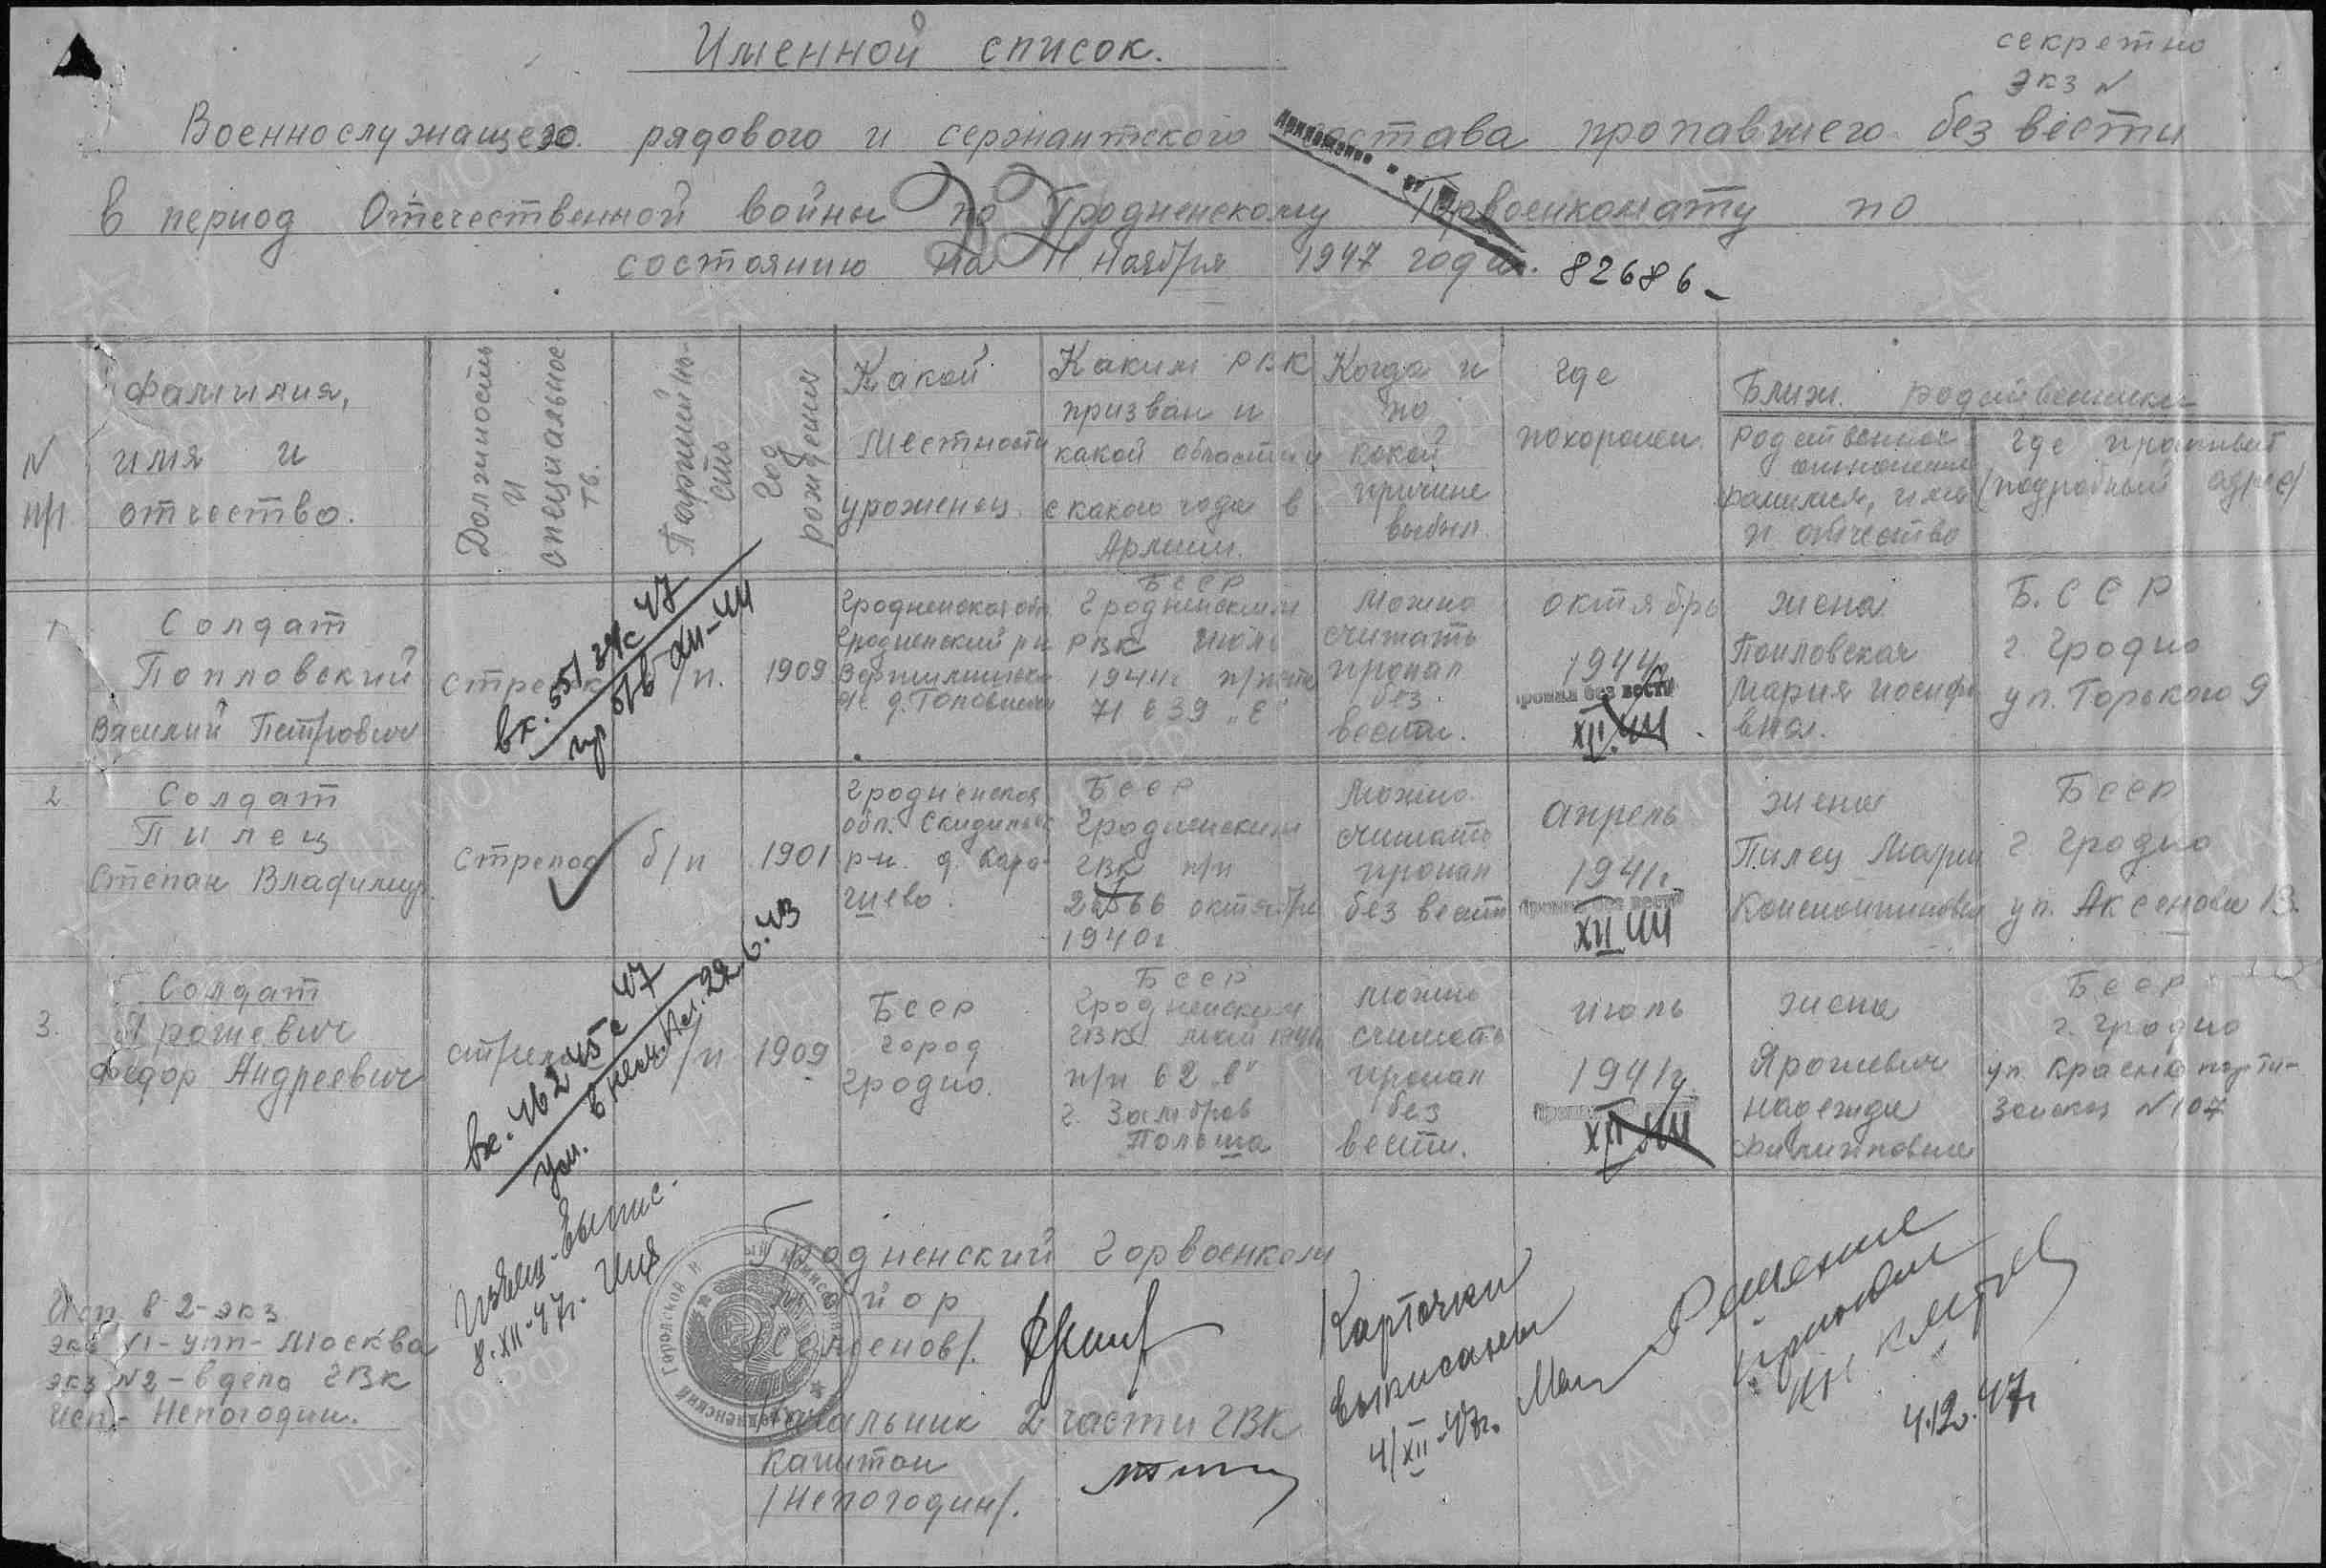 Именной список.
секретно
экз №
Военнослужащего рядового и сержантского состава пропавшего без вести
в период Отечественной войны по Гродненскому Горвоенкомату по
состоянию на 11 ноября 1947 года. 82686
№ п/п
Фамилия, имя и отчество.
Должность и специальность
Партийность
Год рождения
Какой местности уроженец
Каким РВК призван и какой области и с какого года в Армии.
Когда и по какой причине выбыл
где похоронен
Ближ. родственники
Родственное отношение фамилия, имя и отчество
где проживает /подробный адрес/
1
Солдат
Попловский
Василий Петрович
стрелок
/п.
1909
Гродненской обл.
Гродненский р-н
д.
БССР
Гродненским
РВК июль
1944г п/почта
71639 "Е"
можно
считать
пропал
без
вести.
октябрь
1944г
пропал без вести
XII.44
жена
Попловская
Мария Иосифовна.
Б.ССР
г. Гродно
ул. Горького 9
вх. 551 с 47
XII-44
2
Солдат
Пилец
Степан Владимир.
стрелок
б/п
1901
Гродненская
обл. Скидильск
р-н. д. Кара-
шево.
БССР
Гродненским
ГВК п/п
октября
1940г
можно
считать
пропал
без вести
апрель
1941г
пропал без вести
XII 44
жена
Пилец Мария
Константиновна
БССР
г Гродно
ул. Аксенова 13.
3.
Солдат
Ярошевич
Федор Андреевич
стрелок
/п
1909
БССР
город
Гродно.
БССР
Гродненским
ГВК май 1941
п/п 62 "в"
г. Замбров
Польша
можно
считать
пропал
без
вести.
июль
1941г.
XII 44
жена
Ярошевич
Надежда
Филипповна
БССР
г. Гродно
ул. Красно парти-
занская №107
вх. 46245с 47
ум. в плену 22.6.43
Извещ. выпис.
8.XII-47г.
Гродненский Горвоенком
майор
/Семенов/.
Начальник 2 части ГВК
капитан
/Непогодин/.
Исп. в 2-экз
экз №1-упп-Москва
экз №2-в дело ГВК
Исп.- Непогодин.
Карточки
выписаны
4/XII-47г.
Решение
принял
4.12.47г